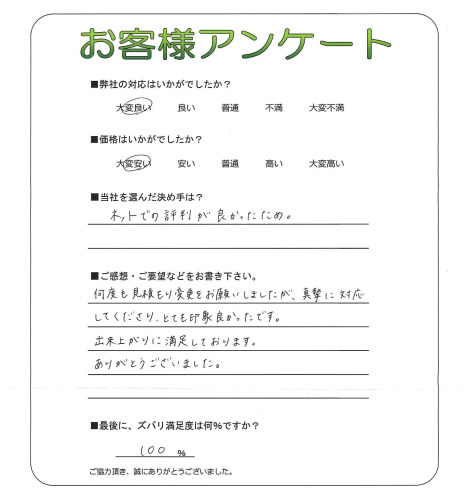 お客様アンケート
■弊社の対応はいかがでしたか？
大変良い 良い 普通 不満 大変不満
■価格はいかがでしたか？
大変安い 安い 普通 高い 大変高い
■当社を選んだ決め手は？
ネットでの評判が良かったため。
■ご感想・ご要望などをお書き下さい。
何度も見積もり変更をお願いしましたが、真摯に対応
してくださり、とても印象良かったです。
出来上がりに満足しております。
ありがとうございました。
■最後に、ズバリ満足度は何％ですか？
100 ％
ご協力頂き、誠にありがとうございました。